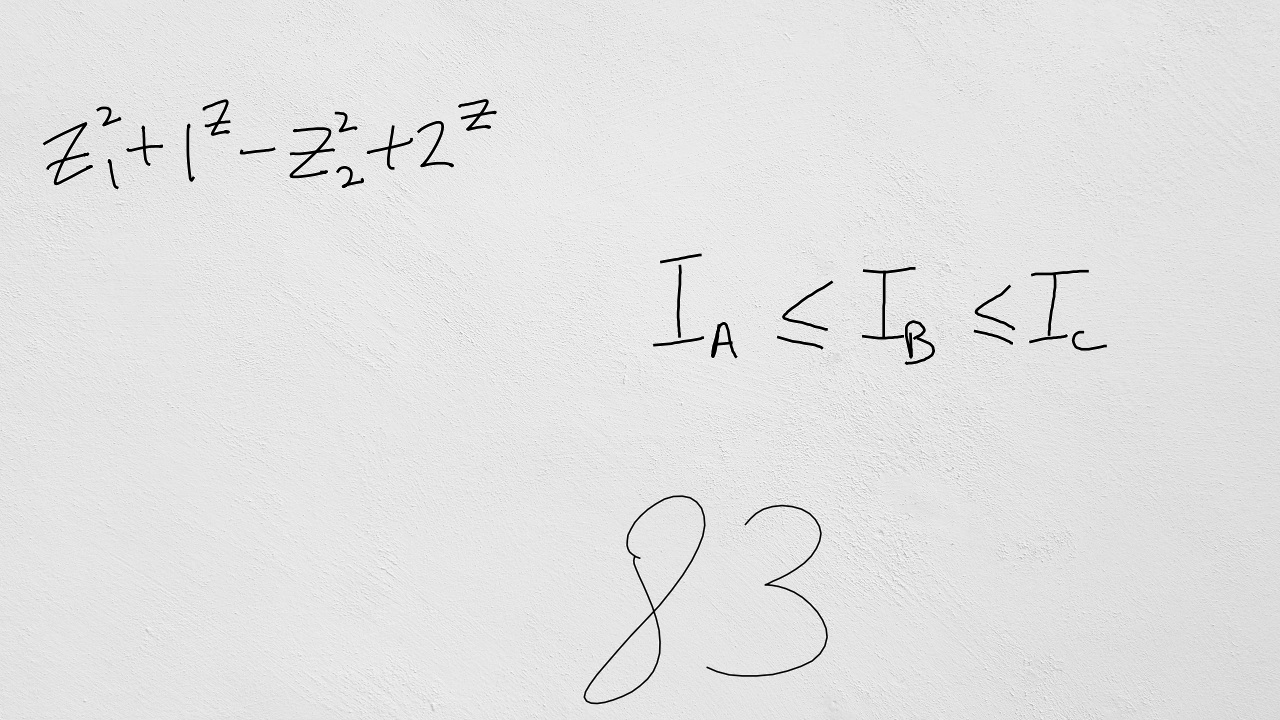 z₁² + 1ᶻ - z₂² + 2ᶻ
I_A ≤ I_B ≤ I_C
83